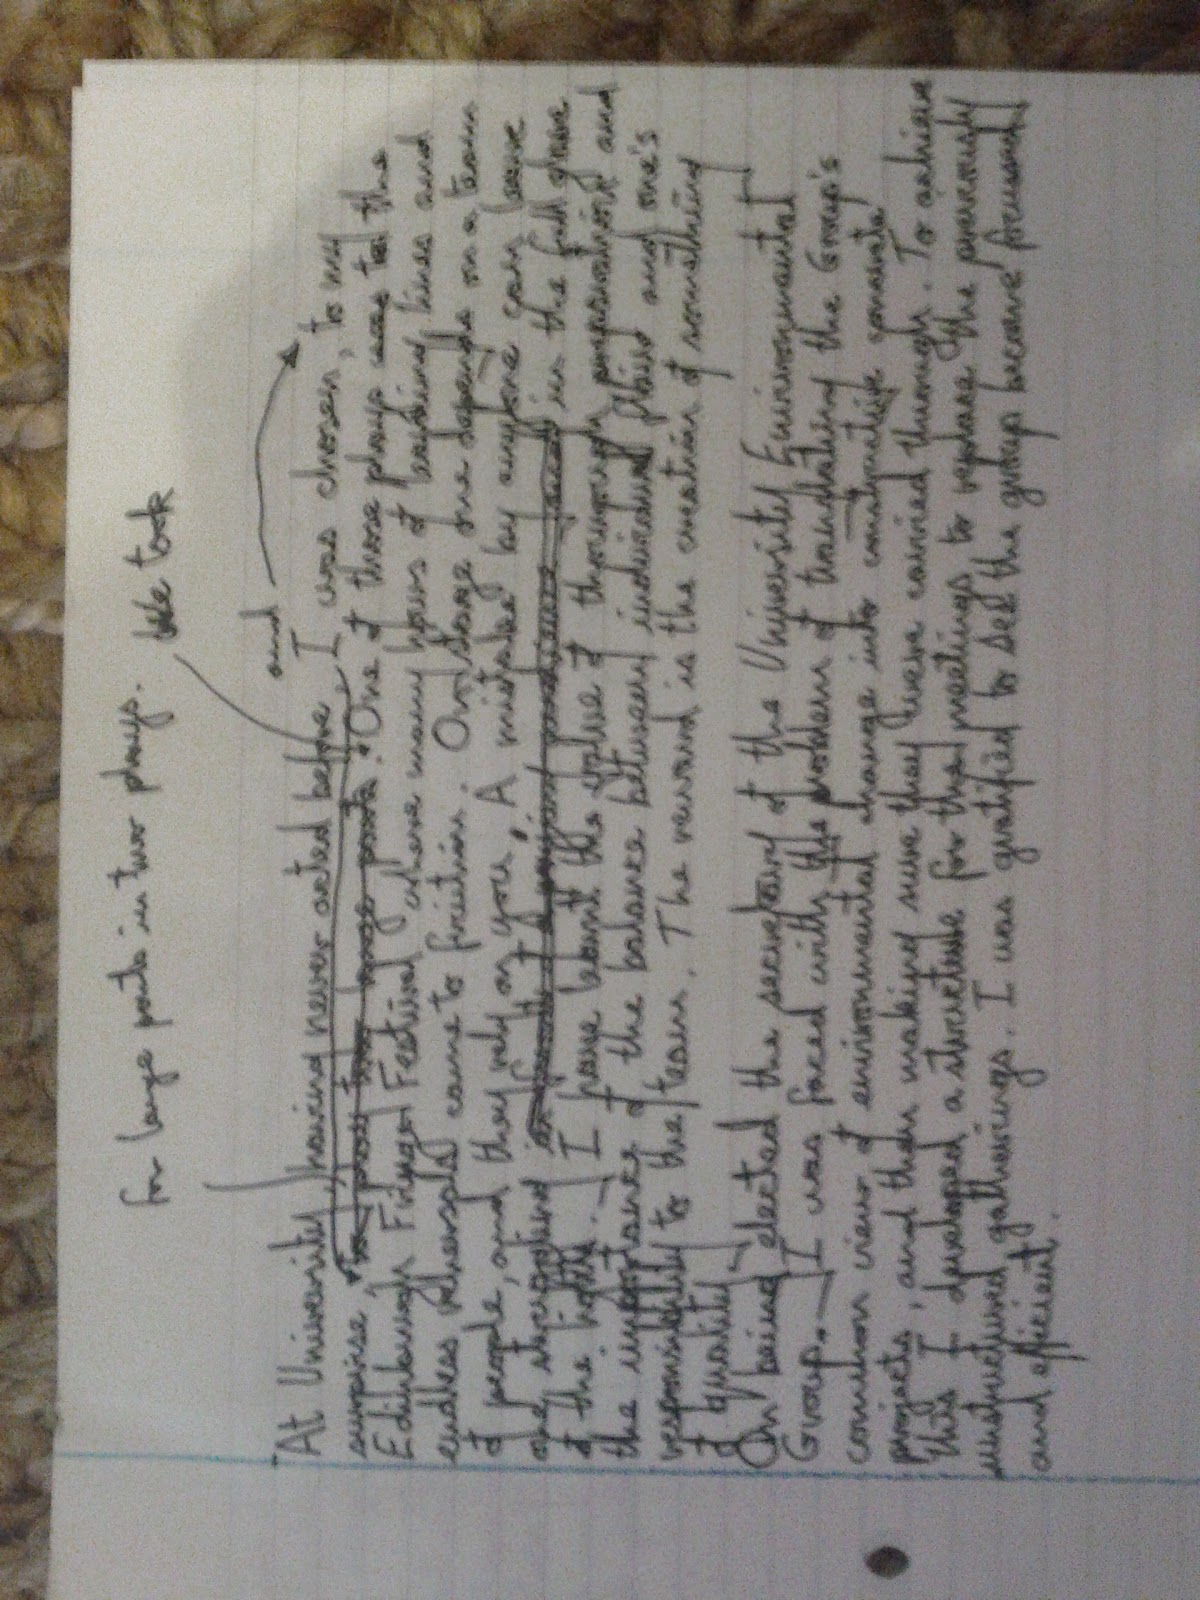 for large parts in two plays. We took
and
"At University, having never acted before I was chosen, to my
surprise, to play two large parts. One of those plays was to the
Edinburgh Fringe Festival, where many hours of learning lines and
endless rehearsals came to fruition. On stage one depends on a team
of people, and they rely on you. A mistake by anyone can leave
one stranded in the full glare
of the lights. I have learnt the value of thorough preparation and
the importance of the balance between individual flair and one's
responsibility to the team. The reward is the creation of something
of quality
On being elected the secretary of the University Environmental
Group, I was faced with the problem of translating the Group's
common view of environmental change into constructive
projects, and then making sure they were carried through. To achieve
this I developed a structure for the meetings to replace the previously
unstructured gatherings. I was gratified to see the group become focused
and efficient.